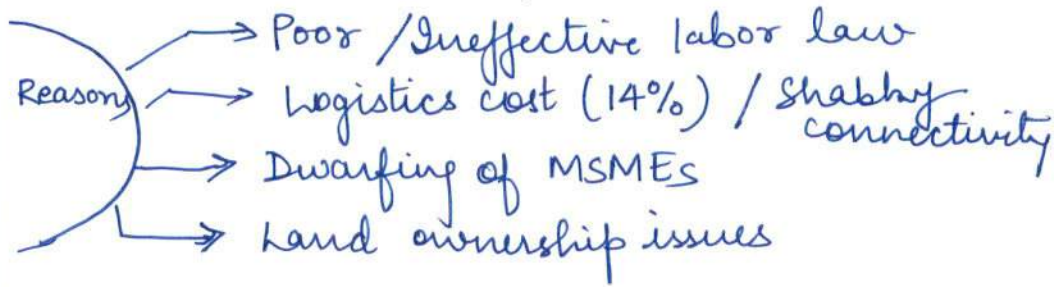 Reasons
Poor / Ineffective labor law
Logistics cost (14%) / Shabby
connectivity
Dwarfing of MSMEs
Land ownership issues